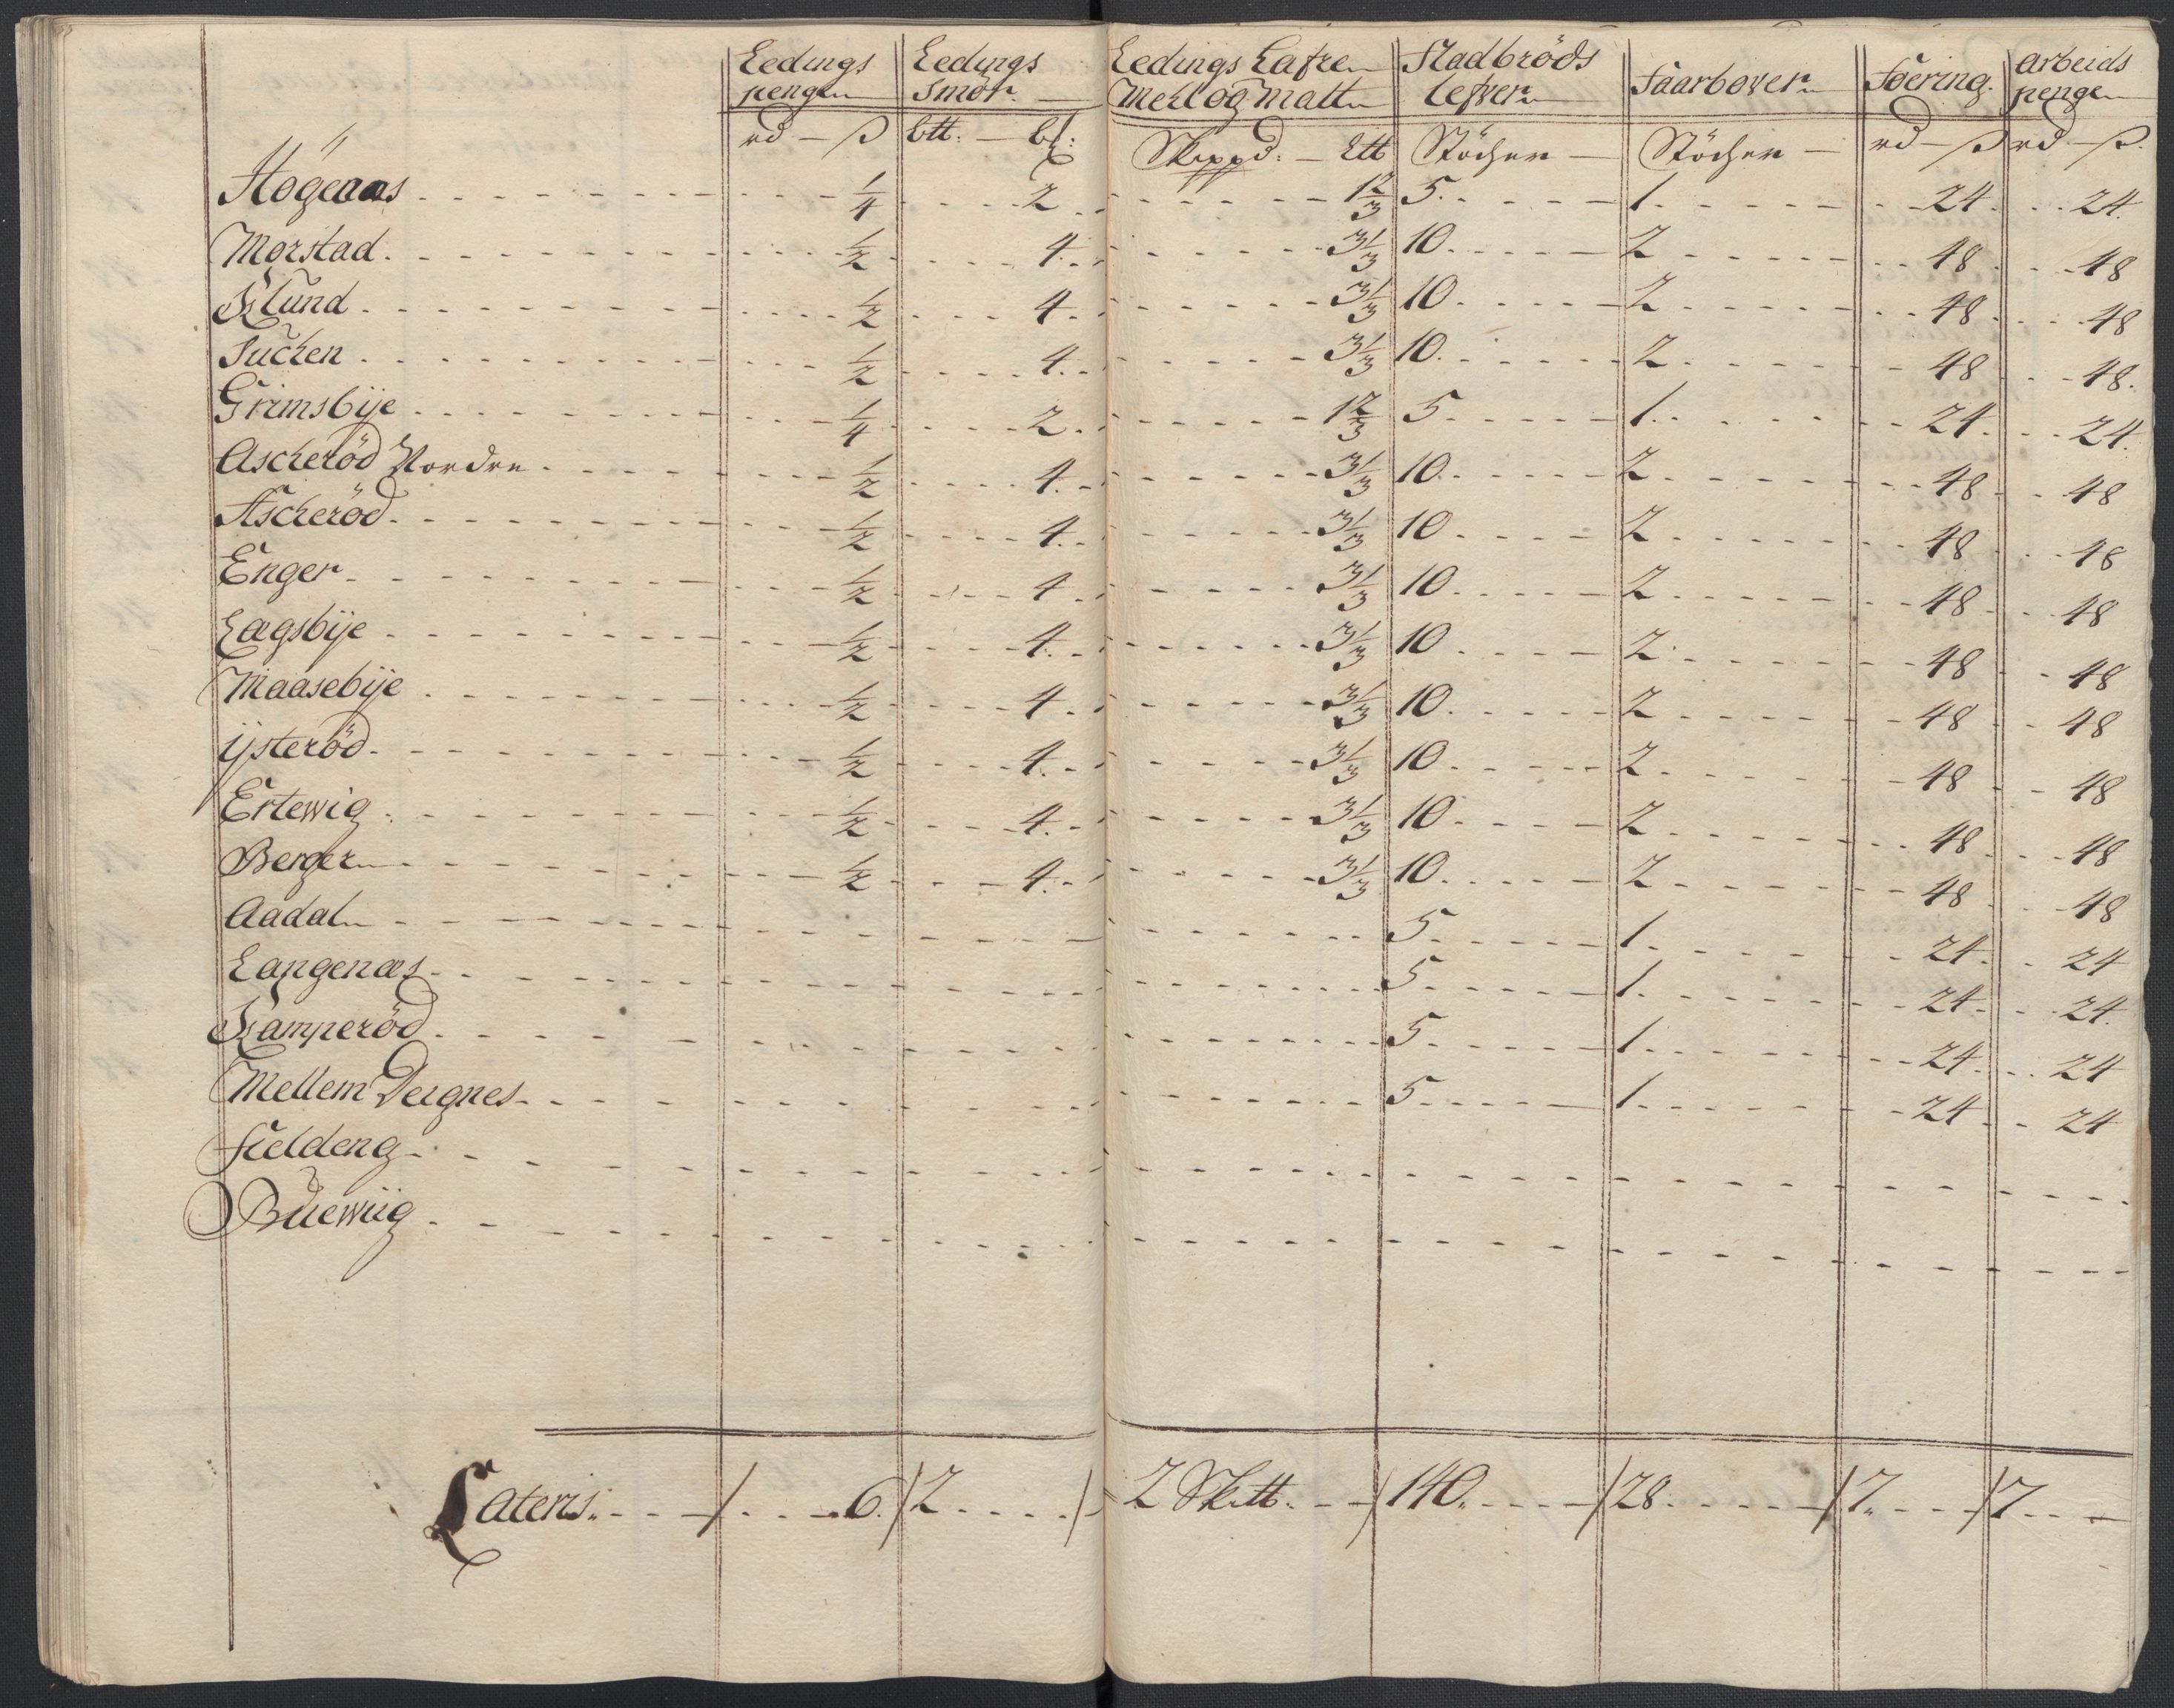 Ledings pengen | Ledings Smör | Ledings Hafre Mehl og Malt | Fladbröds lefver | Faarbover | Föering | arbeids penge
rd — ß | btt: — bl: | Skippd: — Ltt | Stöcher | Stöcher | rd — ß | rd — ß
Högenæs | 1/4 | 2 | 1 2/3 | 5 | 1 | 24 | 24
Morstad | 1/2 | 4 | 3 1/3 | 10 | 2 | 48 | 48
Klund | 1/2 | 4 | 3 1/3 | 10 | 2 | 48 | 48
Suchen | 1/2 | 4 | 3 1/3 | 10 | 2 | 48 | 48
Grimsbije | 1/4 | 2 | 1 2/3 | 5 | 1 | 24 | 24
Ascheröd Nordre | 1/2 | 4 | 3 1/3 | 10 | 2 | 48 | 48
Ascheröd | 1/2 | 4 | 3 1/3 | 10 | 2 | 48 | 48
Enger | 1/2 | 4 | 3 1/3 | 10 | 2 | 48 | 48
Lagsbije | 1/2 | 4 | 3 1/3 | 10 | 2 | 48 | 48
Maasebije | 1/2 | 4 | 3 1/3 | 10 | 2 | 48 | 48
ijsteröd | 1/2 | 4 | 3 1/3 | 10 | 2 | 48 | 48
Ertewig | 1/2 | 4 | 3 1/3 | 10 | 2 | 48 | 48
Berger | 1/2 | 4 | 3 1/3 | 10 | 2 | 48 | 48
Aadal | 5 | 1 | 24 | 24
Langenæs | 5 | 1 | 24 | 24
Kamperöd | 5 | 1 | 24 | 24
Mellem Deignes | 5 | 1 | 24 | 24
Fieldeng
Buewiig
Lateris | 6 | 2 | 2 Sk.tt | 140 | 28 | 7 | 7